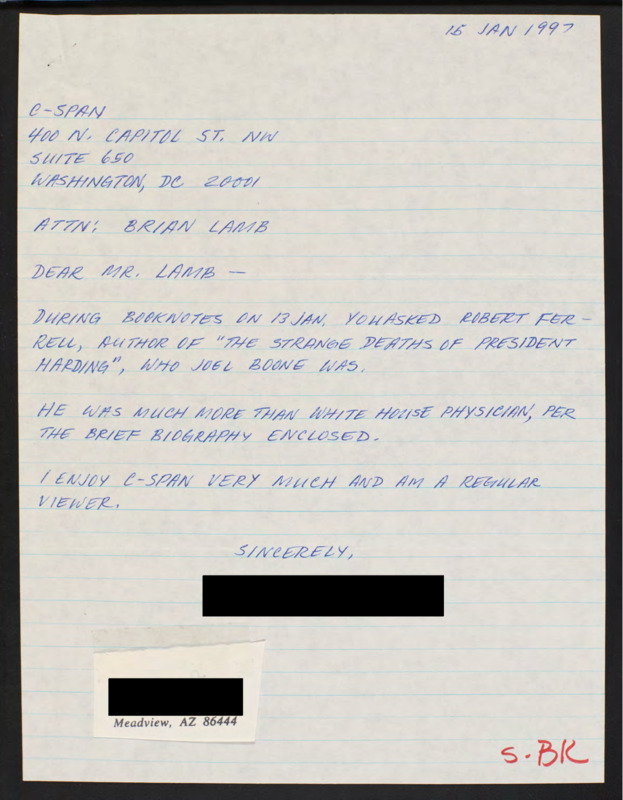 15 JAN 1997
C-SPAN
400 N. CAPITOL ST. NW
SUITE 650
WASHINGTON, DC 20001
ATTN: BRIAN LAMB
DEAR MR. LAMB —
DURING BOOKNOTES ON 13 JAN. YOU ASKED ROBERT FER-
RELL, AUTHOR OF "THE STRANGE DEATHS OF PRESIDENT
HARDING", WHO JOEL BOONE WAS.
HE WAS MUCH MORE THAN WHITE HOUSE PHYSICIAN, PER
THE BRIEF BIOGRAPHY ENCLOSED.
I ENJOY C-SPAN VERY MUCH AND AM A REGULAR
VIEWER.
SINCERELY,
Meadview, AZ 86444
S-BK